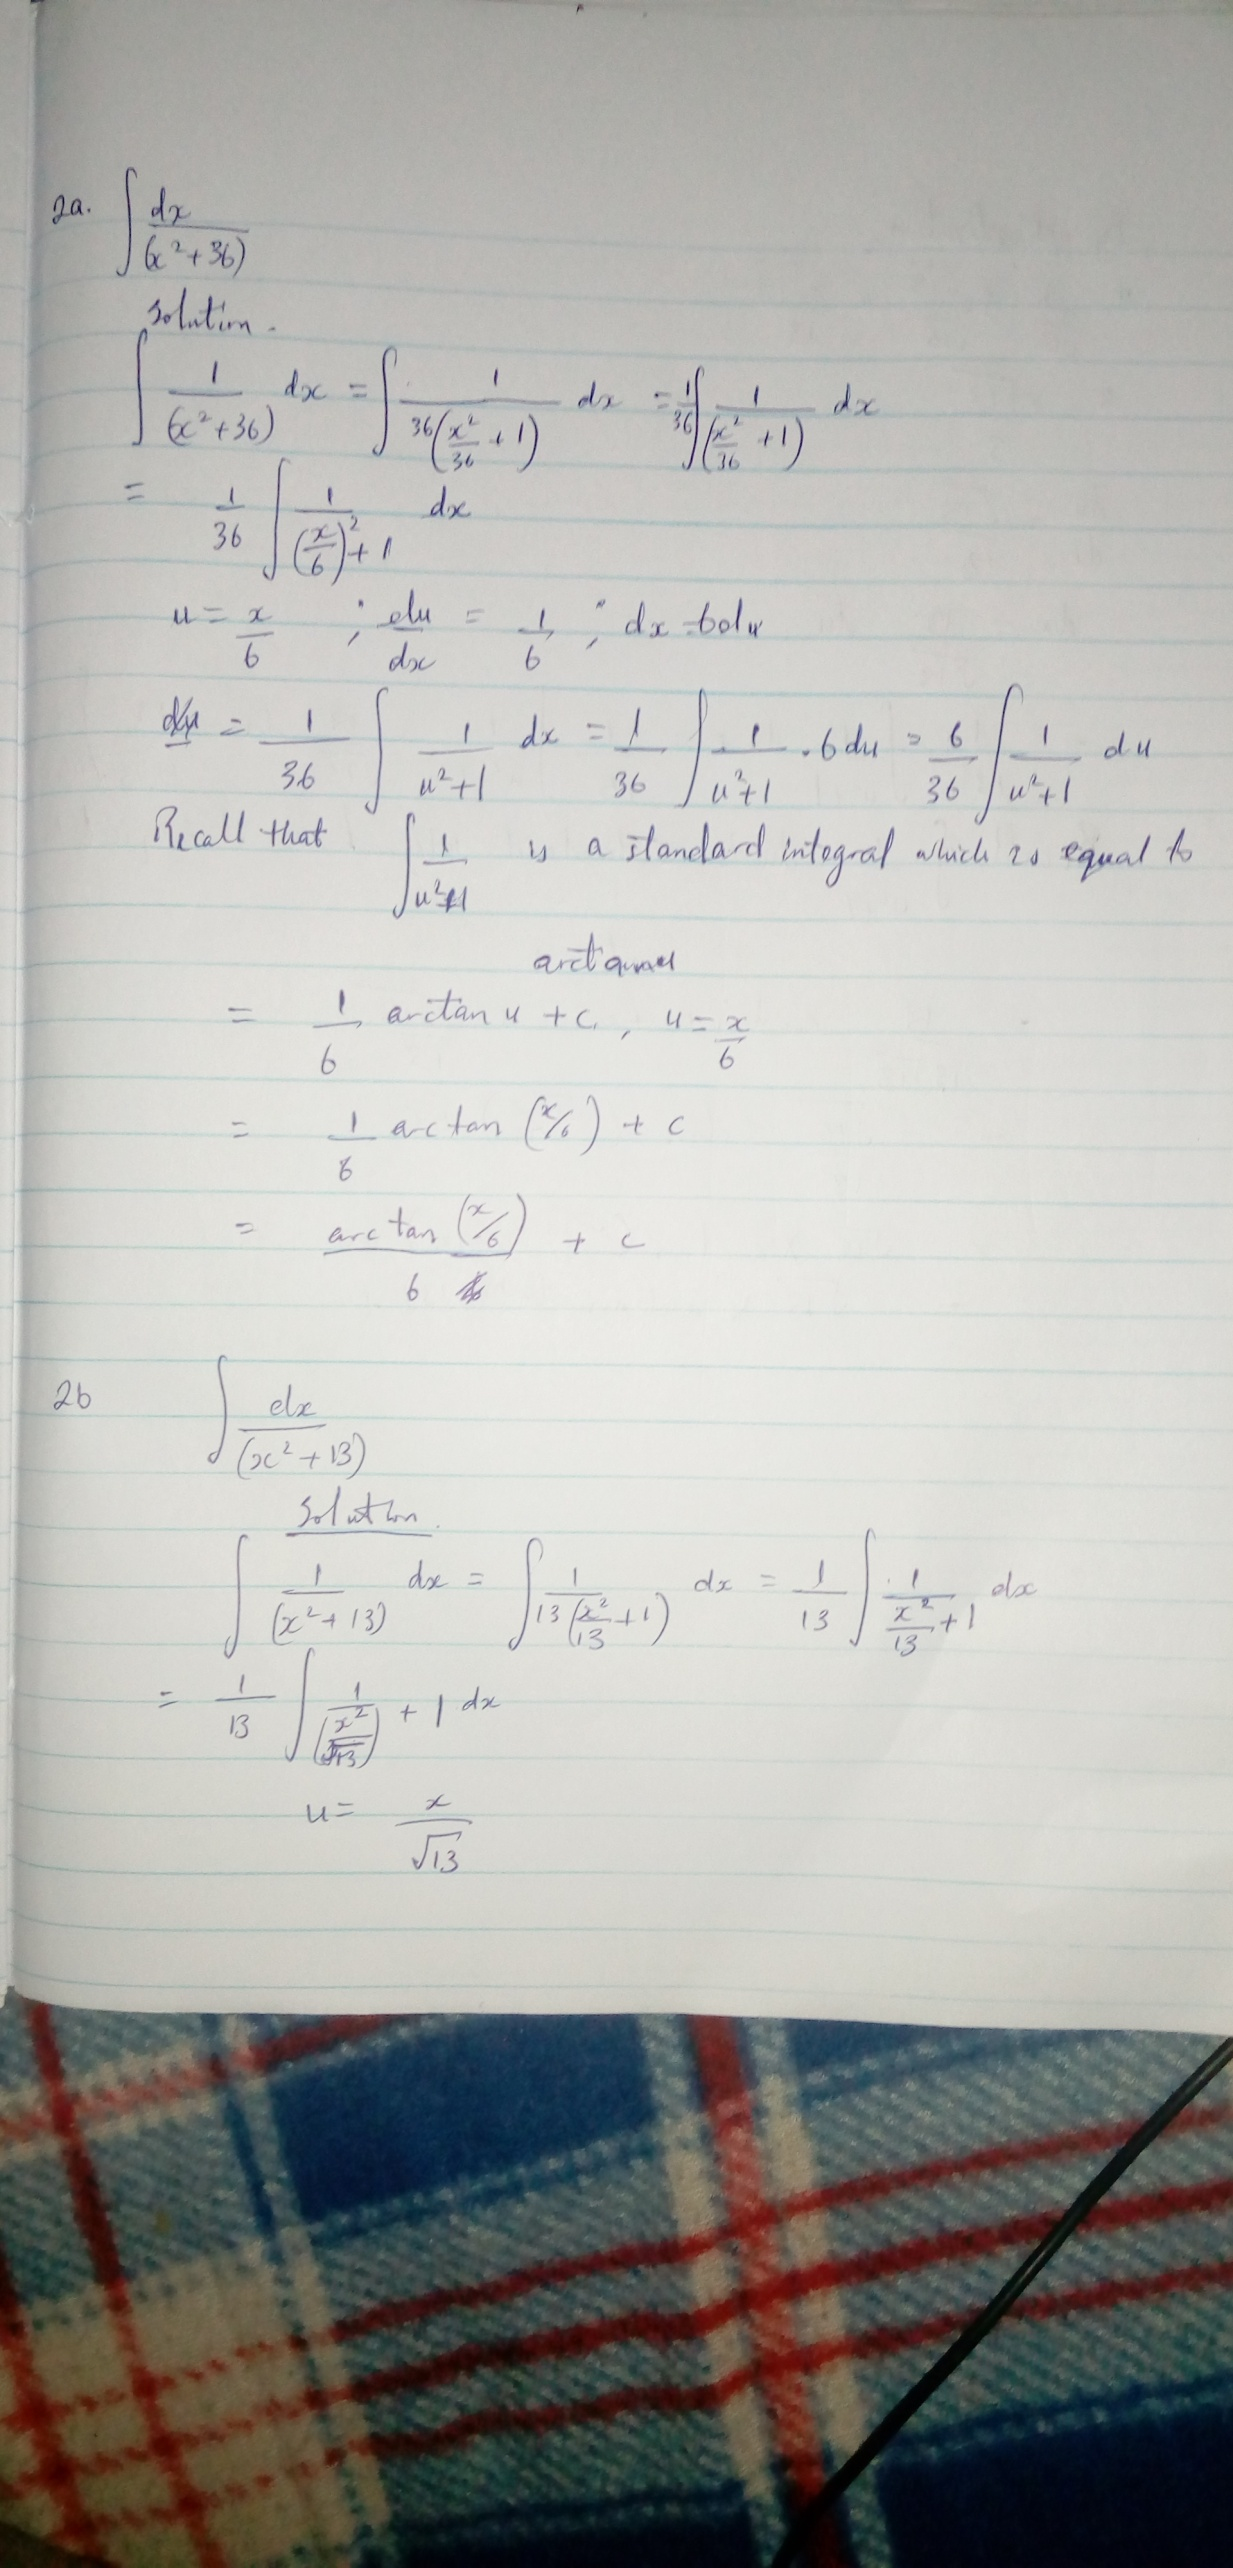 2a. ∫ dx/(x²+36)
Solution.
∫ 1/(x²+36) dx = ∫ 1/36(x²/36 + 1) dx = 1/36 ∫ 1/(x²/36 + 1) dx
= 1/36 ∫ 1/(x/6)²+1 dx
u = x/6 ; du/dx = 1/6 ; dx = 6du
= 1/36 ∫ 1/u²+1 dx = 1/36 ∫ 1/u²+1 . 6du = 6/36 ∫ 1/u²+1 du
Recall that ∫ 1/u²+1 is a standard integral which is equal to
= 1/6 arctan u + c, u = x/6
= 1/6 arctan (x/6) + c
= arctan (x/6)/6 + c
2b ∫ dx/(x²+13)
Solution.
∫ 1/(x²+13) dx = ∫ 1/13(x²/13 + 1) dx = 1/13 ∫ 1/x²/13 + 1 dx
= 1/13 ∫ 1/(x²/√13) + 1 dx
u = x/√13